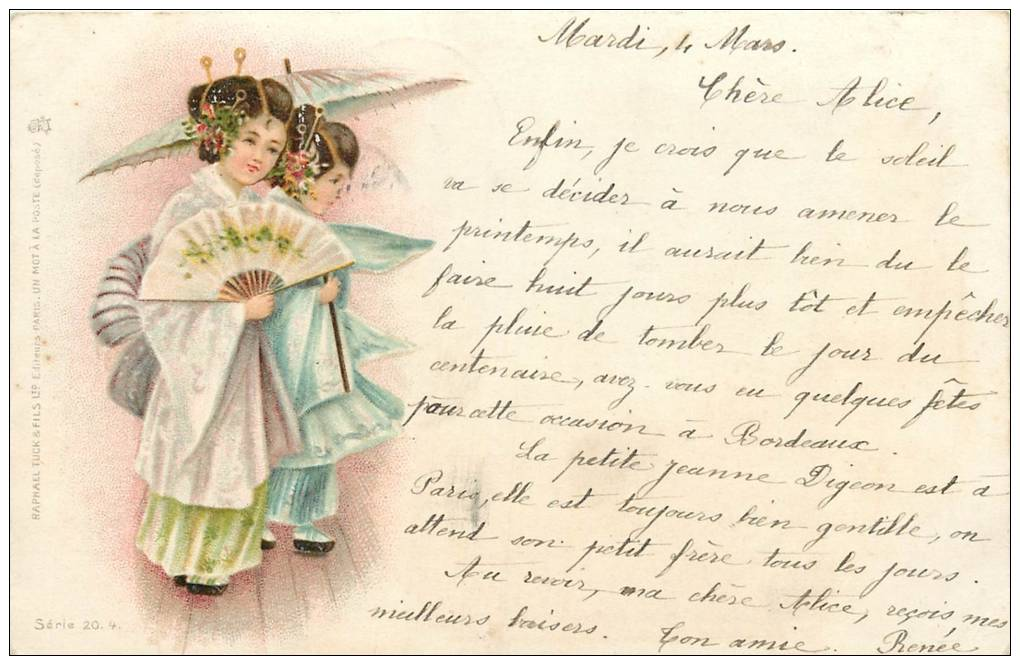 Mardi, 4 Mars.
Chère Alice,
Enfin, je crois que le soleil
va se décider à nous amener le
printemps, il aurait bien du le
faire huit jours plus tôt et empêcher
la pluie de tomber le jour du
centenaire, avez-vous eu quelques fêtes
pour cette occasion à Bordeaux.
La petite Jeanne Digeon est à
Paris, elle est toujours bien gentille, on
attend son petit frère tous les jours.
Au revoir, ma chère Alice, reçois mes
meilleurs baisers. Ton amie. Renée
RAPHAEL TUCK & FILS LTD Editeurs PARIS. UN MOT À LA POSTE (déposé)
Série 20. 4.